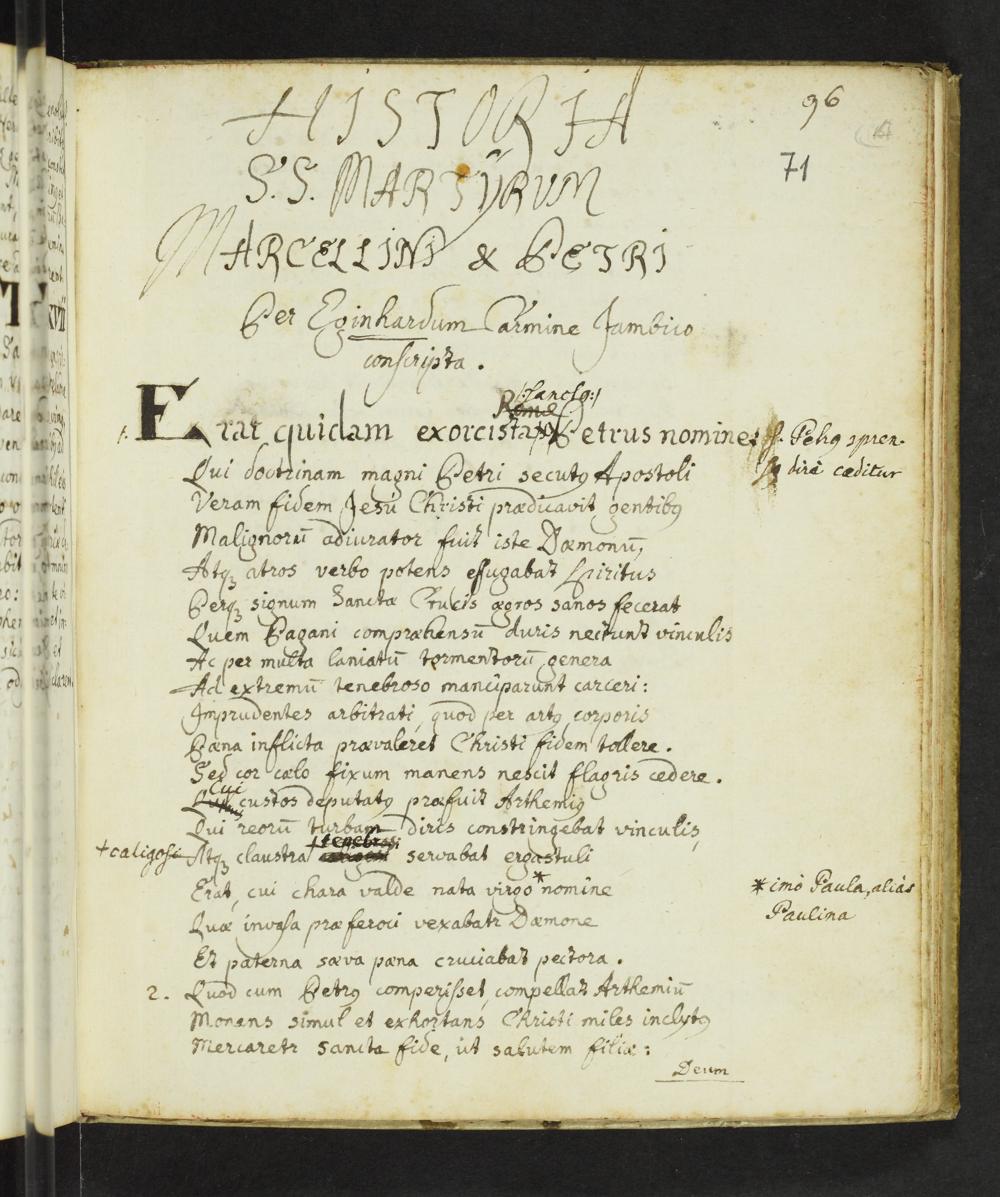 HISTORIA
96
S.S. MARTŸRVM
71
MARCELLINI & PETRI
Per Eginhardum Carmine Jambico
conscripta.
/:sancto:/
Romæ
1. Erat quidam exorcista Petrus nomine
dirè cæditur
Qui doctrinam magni Petri secutꝰ Apostoli
Veram fidem Jesu Christi prædicavit gentibꝰ
Malignorū adiurator fuit iste Dæmonū,
Atqꝫ atros verbo potens effugabat Spiritus
Perqꝫ signum Sanctæ Crucis ægros sanos fecerat
Quem Pagani compræhensū duris nectunt vinculis
Ac per multa laniatū tormentorū genera
Ad extremū tenebroso manciparunt carceri:
Imprudentes arbitrati, quod per artꝰ corporis
Pæna inflicta prævaleret Christi fidem tollere.
Sed cor cælo fixum manens nescit flagris cedere.
Cui
custos deputatꝰ præfuit Arthemiꝰ
Qui reorū turbam diris constringebat vinculis,
tenebrosi
+caligosi Atqꝫ claustra + servabat ergastuli
Erat, cui chara valde nata virgo * nomine
* imò Paula, aliàs
Paulina
Quæ invasa præferoci vexabatr Dæmone
Et paterna sæva pæna cruciabat pectora.
2. Quod cum Petrꝰ comperisset, compellat Arthemiū
Monens simul et exhortans Christi miles inclytꝰ
Mercaretr sancta fide, ut salutem filiæ:
Deum